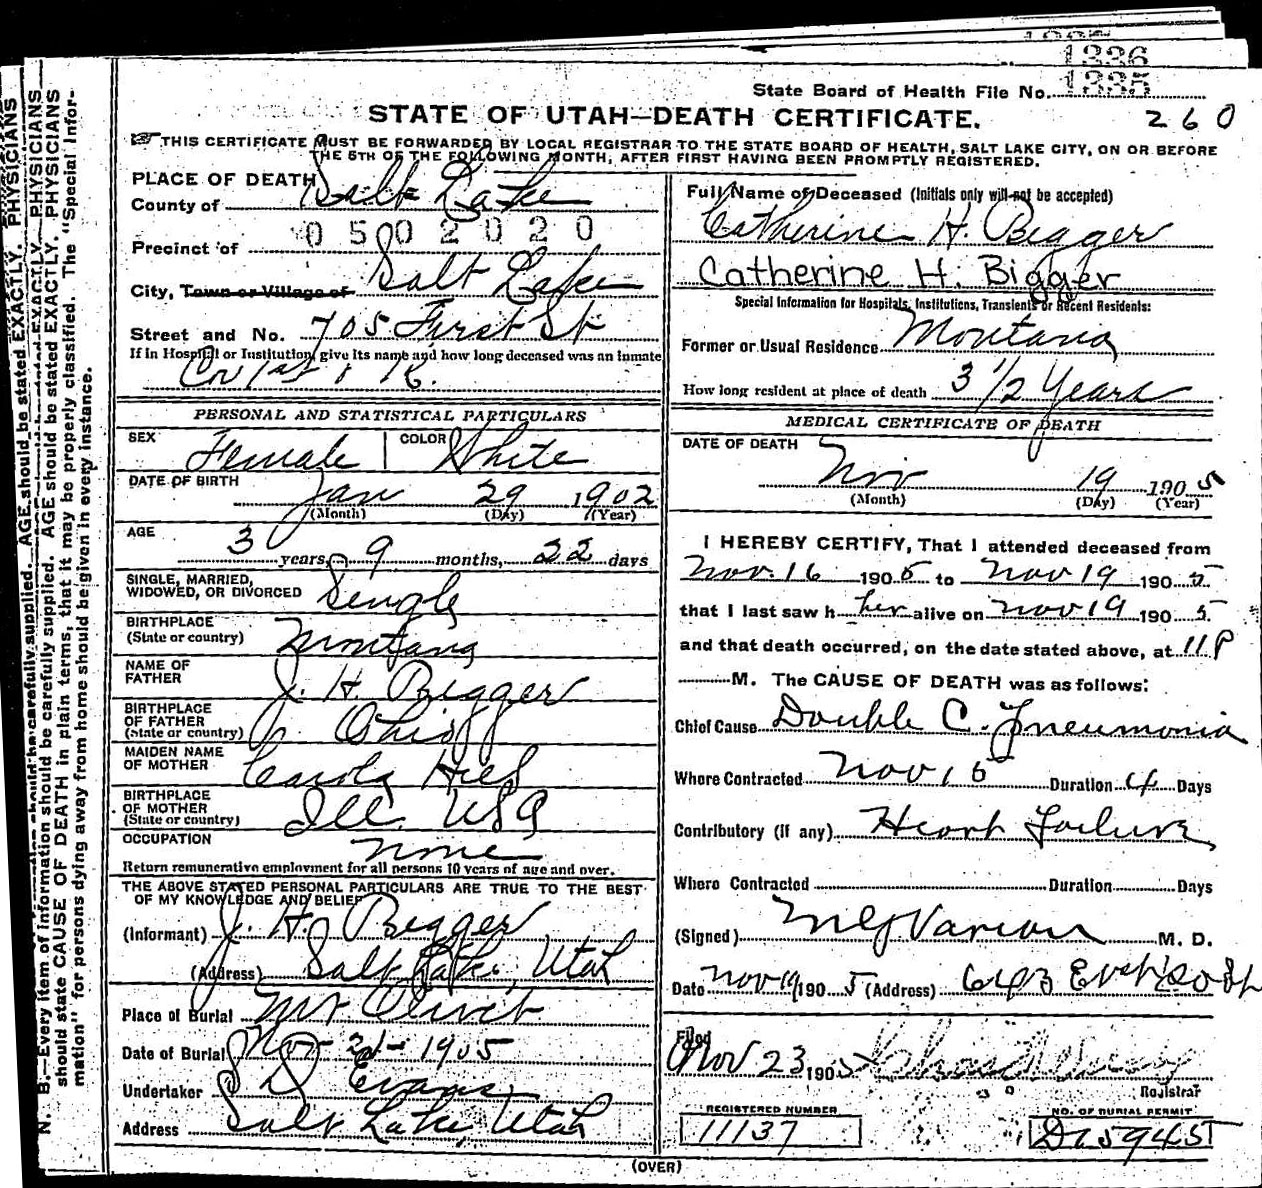 1336
State Board of Health File No. 1335
STATE OF UTAH—DEATH CERTIFICATE. 260
THIS CERTIFICATE MUST BE FORWARDED BY LOCAL REGISTRAR TO THE STATE BOARD OF HEALTH, SALT LAKE CITY, ON OR BEFORE
THE 5TH OF THE FOLLOWING MONTH, AFTER FIRST HAVING BEEN PROMPTLY REGISTERED.
PLACE OF DEATH
County of Salt Lake
0502020
Precinct of
City, Town or Village of Salt Lake
Street and No. 705 First St
If in Hospital or Institution, give its name and how long deceased was an inmate
Cor 1st & K.
PERSONAL AND STATISTICAL PARTICULARS
SEX Female COLOR White
DATE OF BIRTH Jan 29 1902
(Month) (Day) (Year)
AGE 3 years, 9 months, 22 days
SINGLE, MARRIED,
WIDOWED, OR DIVORCED Single
BIRTHPLACE
(State or country) Montana
NAME OF
FATHER J. H. Bigger
BIRTHPLACE
OF FATHER
(State or country) Ohio
MAIDEN NAME
OF MOTHER Hill
BIRTHPLACE
OF MOTHER
(State or country) Ill. USA
OCCUPATION none
Return remunerative employment for all persons 10 years of age and over.
THE ABOVE STATED PERSONAL PARTICULARS ARE TRUE TO THE BEST
OF MY KNOWLEDGE AND BELIEF
(Informant) J. H. Bigger
(Address) Salt Lake, Utah
Place of Burial Mt Olivet
Date of Burial Nov 1905
Undertaker S D Evans
Address Salt Lake, Utah
Full Name of Deceased (Initials only will not be accepted)
Catherine H. Bigger
Catherine H. Bigger
Special Information for Hospitals, Institutions, Transients or Recent Residents:
Former or Usual Residence Montana
How long resident at place of death 3 1/2 Years
MEDICAL CERTIFICATE OF DEATH
DATE OF DEATH
Nov 19 1905
(Month) (Day) (Year)
I HEREBY CERTIFY, That I attended deceased from
Nov. 16 1905 to Nov 19 1905
that I last saw h her alive on Nov 19 1905.
and that death occurred, on the date stated above, at 11 P
M. The CAUSE OF DEATH was as follows:
Chief Cause Double C. Pneumonia
Where Contracted Nov 15 Duration 4 Days
Contributory (if any) Heart Failure
Where Contracted Duration Days
(Signed) Varian M. D.
Date Nov 19 1905 (Address)
Filed
Nov 23 1905
Registrar
REGISTERED NUMBER
11137
NO. OF BURIAL PERMIT
D15945
(OVER)
N. B.—Every item of information should be carefully supplied. AGE should be stated EXACTLY. PHYSICIANS
should state CAUSE OF DEATH in plain terms, that it may be properly classified. The "Special Infor-
mation" for persons dying away from home should be given in every instance.